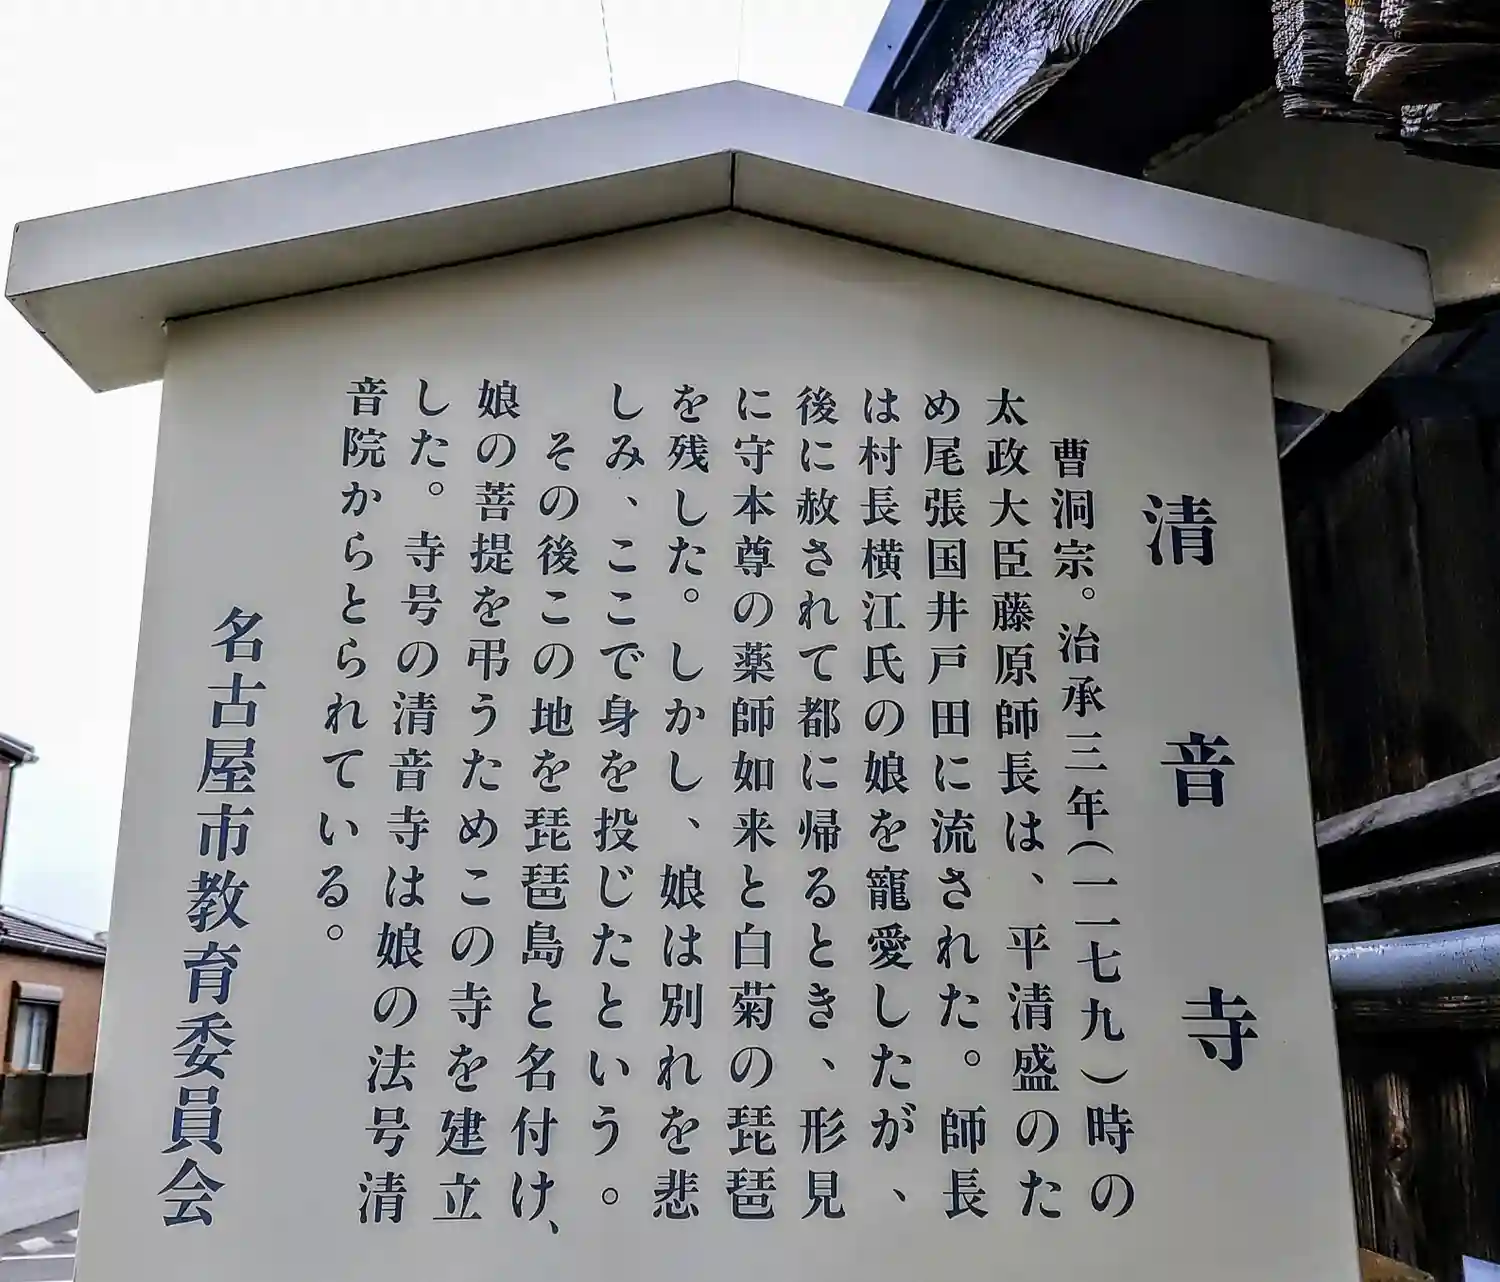 清音寺
曹洞宗。治承三年(一一七九)時の
太政大臣藤原師長は、平清盛のた
め尾張国井戸田に流された。師長
は村長横江氏の娘を寵愛したが、
後に赦されて都に帰るとき、形見
に守本尊の薬師如来と白菊の琵琶
を残した。しかし、娘は別れを悲
しみ、ここで身を投じたという。
その後この地を琵琶島と名付け、
娘の菩提を弔うためこの寺を建立
した。寺号の清音寺は娘の法号清
音院からとられている。
名古屋市教育委員会